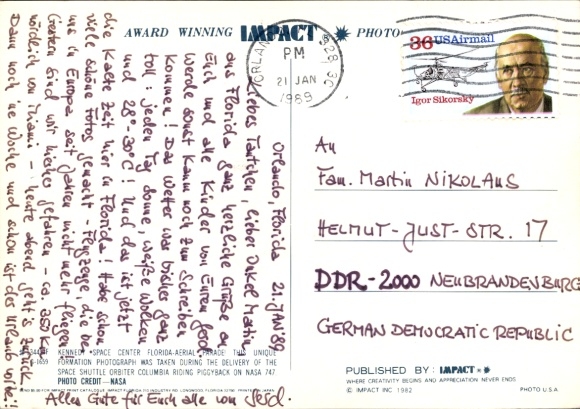 AWARD WINNING IMPACT PHOTO
ORLAN
PM
21 JAN
1989
328 30
36 USAirmail
Igor Sikorsky
Orlando, Florida 21. JAN '89
Liebes Tantchen, lieber Onkel Martin,
aus Florida ganz herzliche Grüsse an
Euch und alle Kinder von Eurem Gerd.
Werde sonst kaum noch zum Schreiben
kommen! Das Wetter war bisher ganz
toll: jeden Tag Sonne, weiße Wolken
und 28°-30°C! Und das ist jetzt
die kalte Zeit hier in Florida! Habe schon
viele schöne Fotos gemacht - Flugzeuge, die bei
uns in Europa seit Jahren nicht mehr fliegen!
Gestern sind wir hierher gefahren - ca. 350 km
nördlich von Miami - heute abend geht's zurück.
Dann noch 'ne Woche und schon ist der Urlaub vorbei!
Alles Gute für Euch alle von Gerd.
An
Fam. Martin NIKOLAUS
HELMUT-JUST-STR. 17
DDR-2000 NEUBRANDENBURG
GERMAN DEMOCRATIC REPUBLIC
KENNEDY SPACE CENTER FLORIDA-AERIAL PARADE THIS UNIQUE
FORMATION PHOTOGRAPH WAS TAKEN DURING THE DELIVERY OF THE
SPACE SHUTTLE ORBITER COLUMBIA RIDING PIGGYBACK ON NASA 747.
PHOTO CREDIT—NASA
PUBLISHED BY: IMPACT
WHERE CREATIVITY BEGINS AND APPRECIATION NEVER ENDS
© IMPACT INC 1982 PHOTO U.S.A